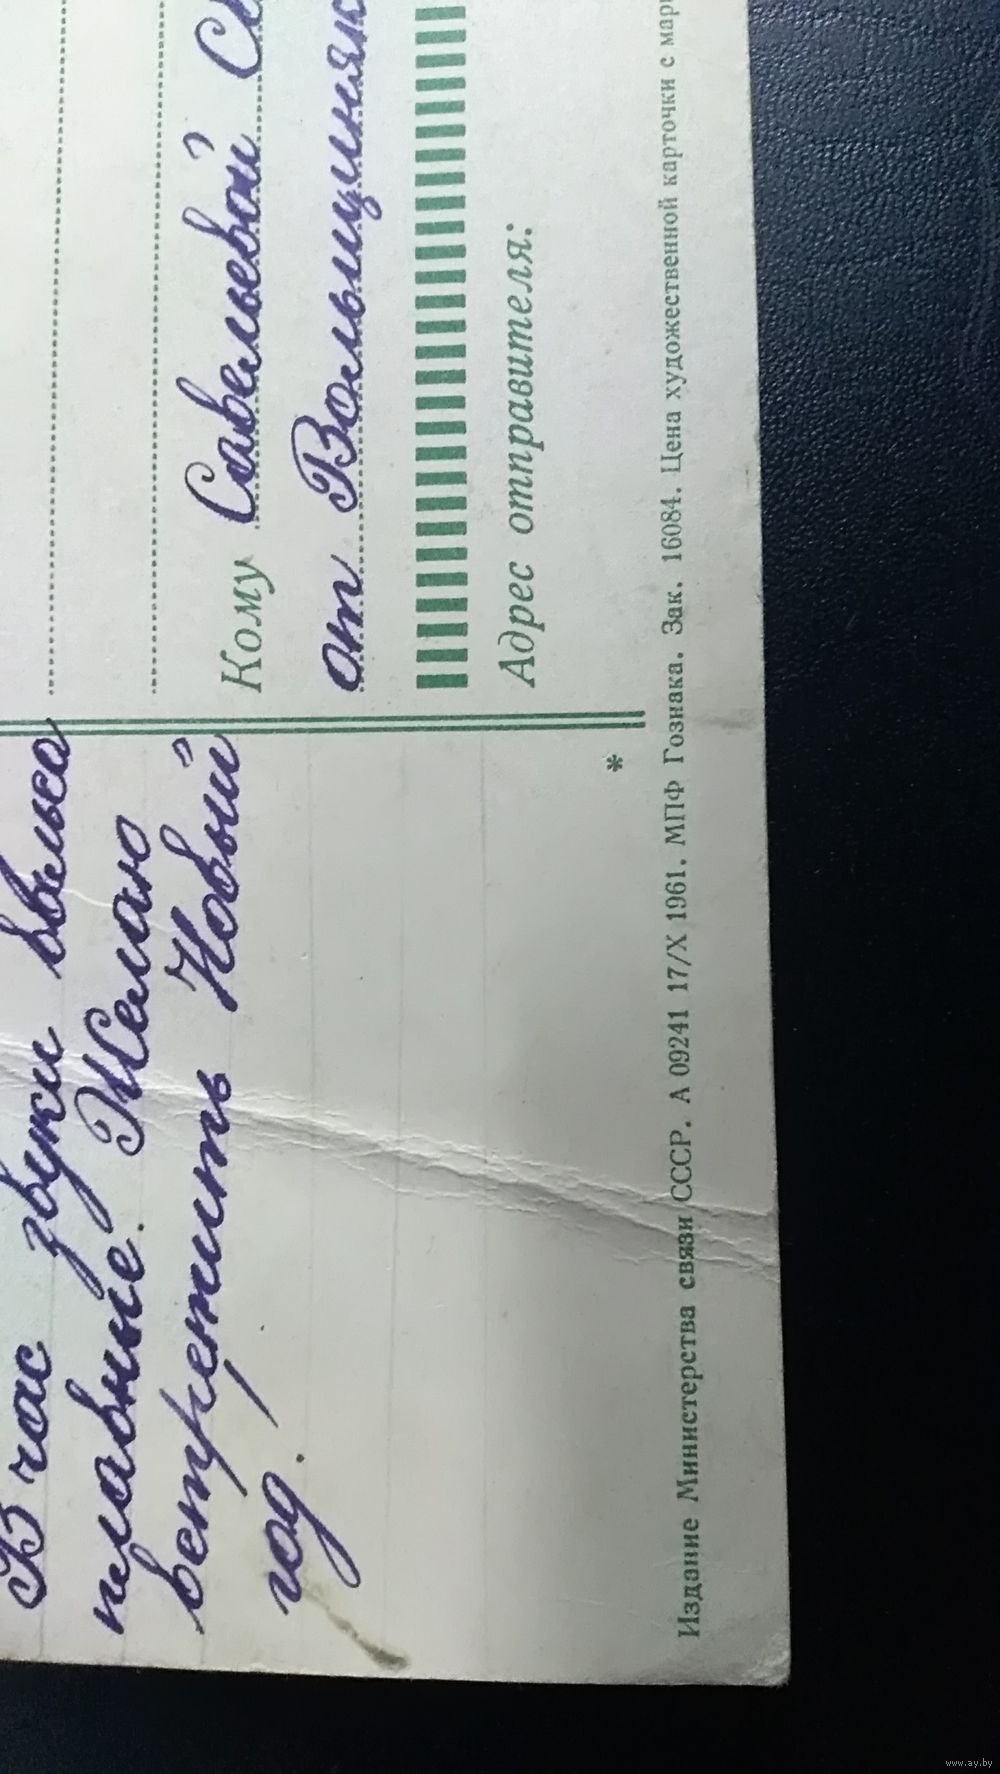 В час звуки вальса
плавные. Желаю
встретить Новый
год!
Кому Савельевой
от
Адрес отправителя:
*
Издание Министерства связи СССР. А 09241 17/X 1961. МПФ Гознака. Зак. 16084. Цена художественной карточки с мар
www.ay.by